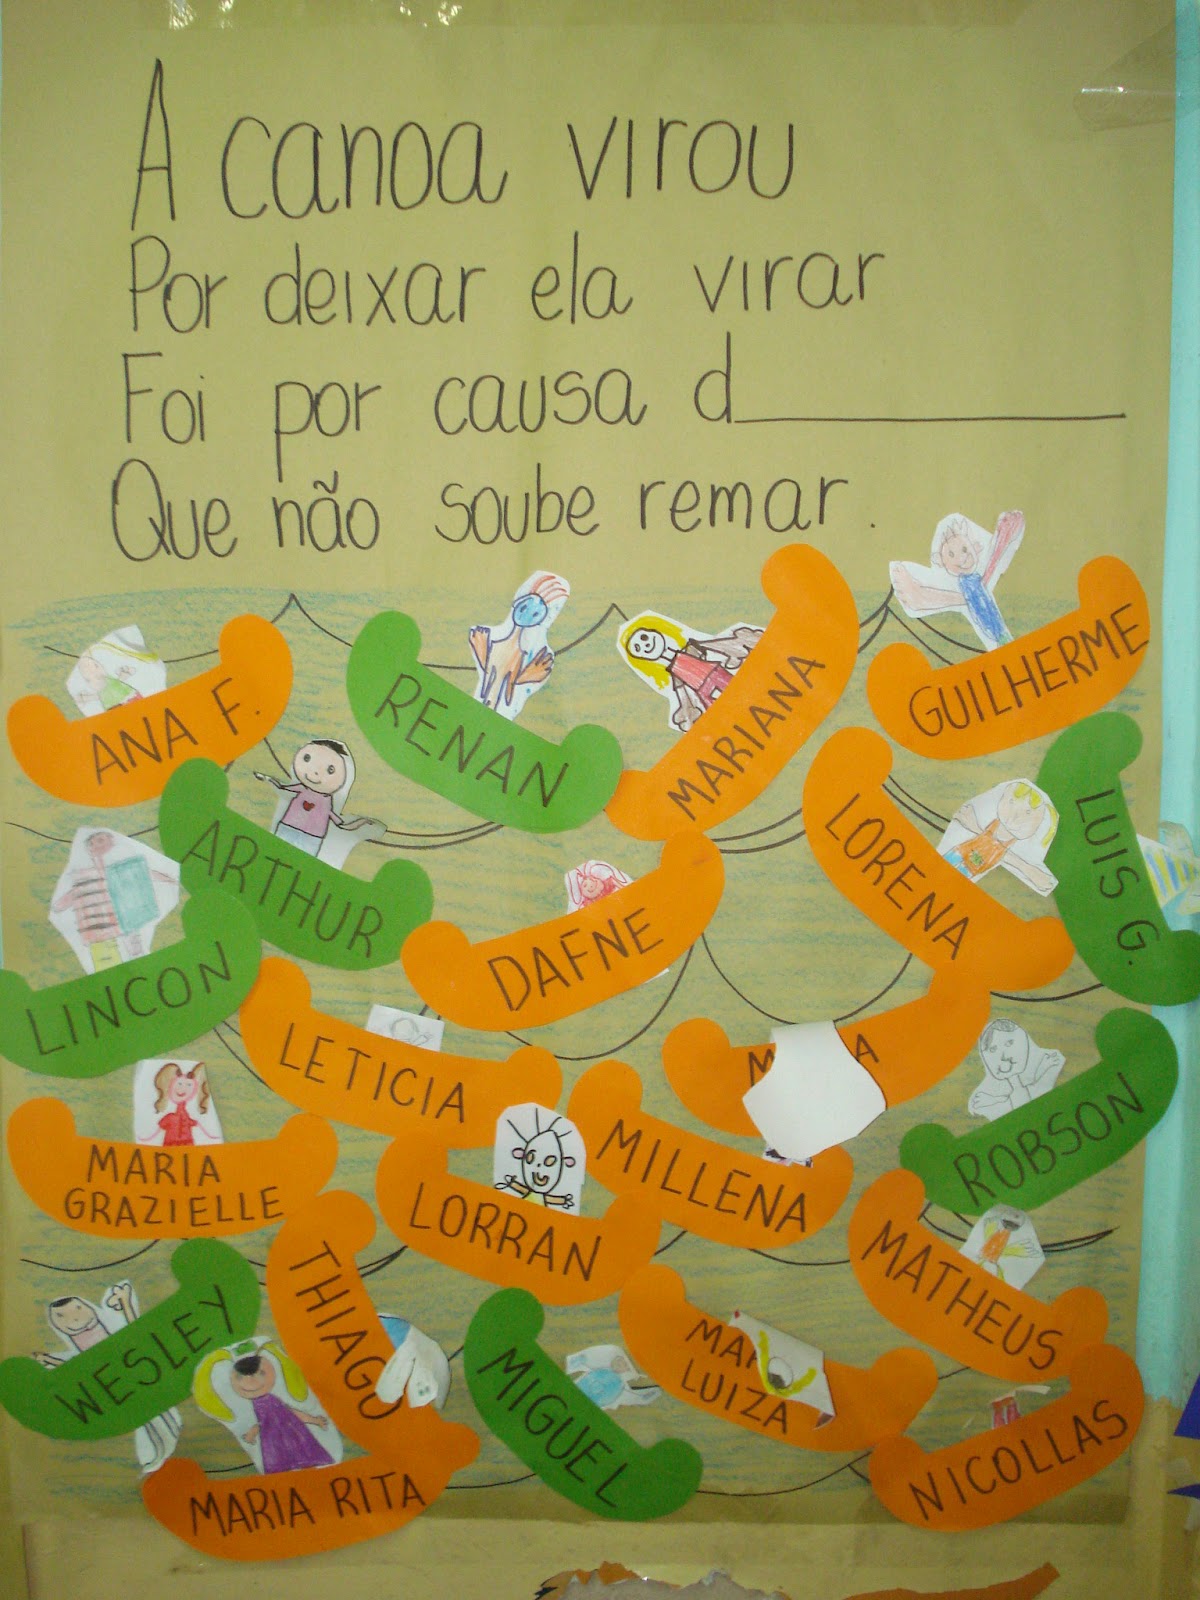 A canoa virou
Por deixar ela virar
Foi por causa d
Que não soube remar.
ANA F.
RENAN
MARIANA
GUILHERME
ARTHUR
LORENA
LUIS G.
LINCON
DAFNE
LETICIA
MARIA
GRAZIELLE
LORRAN
MILLENA
ROBSON
MATHEUS
THIAGO
WESLEY
MIGUEL
LUIZA
MARIA RITA
NICOLLAS